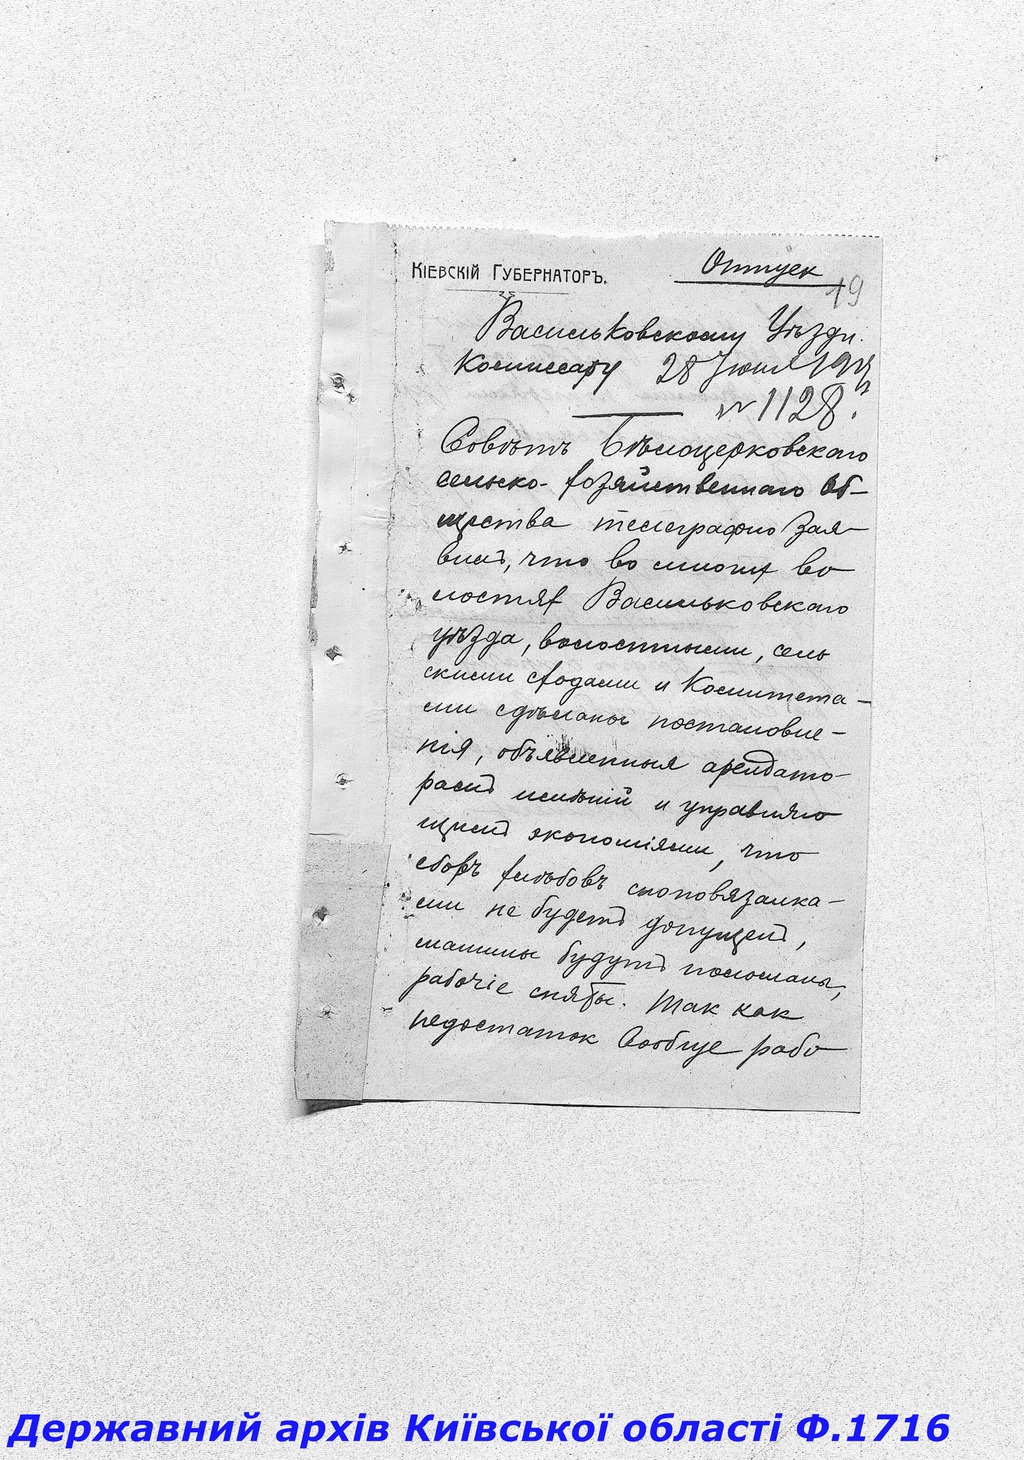 Кіевскій Губернаторъ.
Отпуск
19
Васильковскому Уѣздн.
Комиссару 28 Июня 1917
№ 1128.
Совѣтъ Бѣлоцерковскаго
сельско-хозяйственнаго Об-
щества телеграфно зая-
вил, что во многих во
лостях Васильковскаго
уѣзда, волостными, сель
скими сходами и Комитета-
ми сдѣланы постановле-
нія, объявленныя арендато-
рам имѣний и управляю
щим экономіями, что
сбор хлѣбовъ сноповязалка-
ми не будет допущен,
машины будут поломаны,
рабочіе сняты. Так как
недостаток вообще рабо
Державний архів Київської області Ф.1716